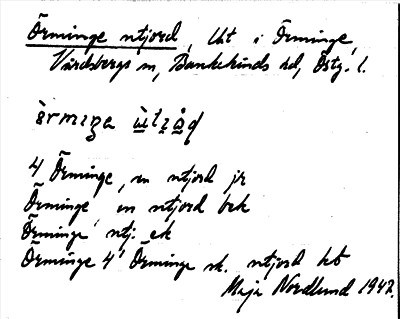 Örminge utjord, Ut i Örminge,
Vårdsbergs sn, Bankekinds hd, Östg. l.
ö̀rmiŋe ùtjo̊ɖ
4 Örminge, en utjord jr
Örminge en utjord bek
Örminge utj. ek
Örminge 4 Örminge sk. utjord kb
Maja Nordlund 1947.